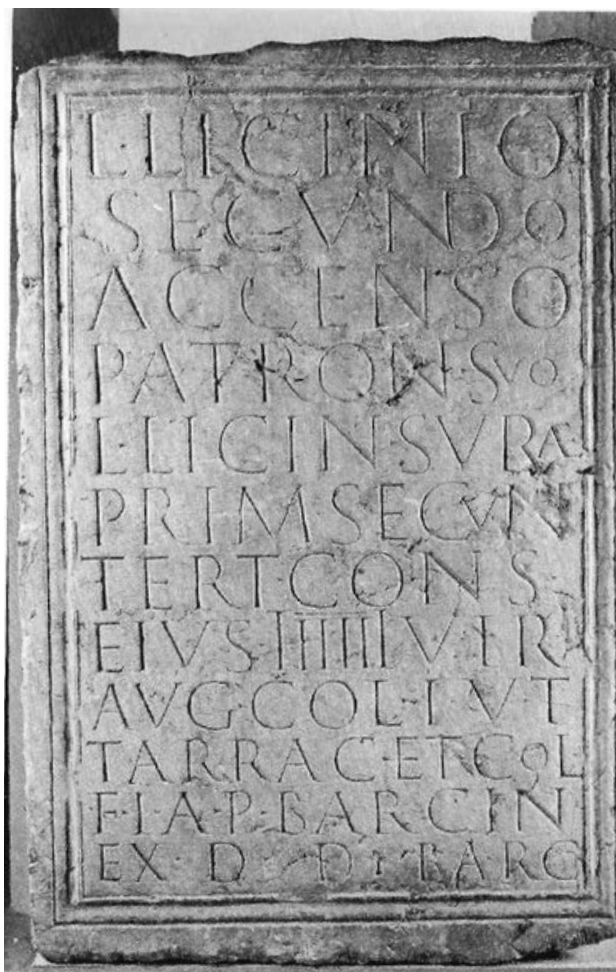 L LICINIO
SECVNDO
ACCENSO
PATRON SVO
L LICIN SVRAE
PRIM SECVN
TERT CONS
EIVS IIIIII VIR
AVG COL I V T
TARRAC ET COL
F I A P BARCIN
EX D D BARC